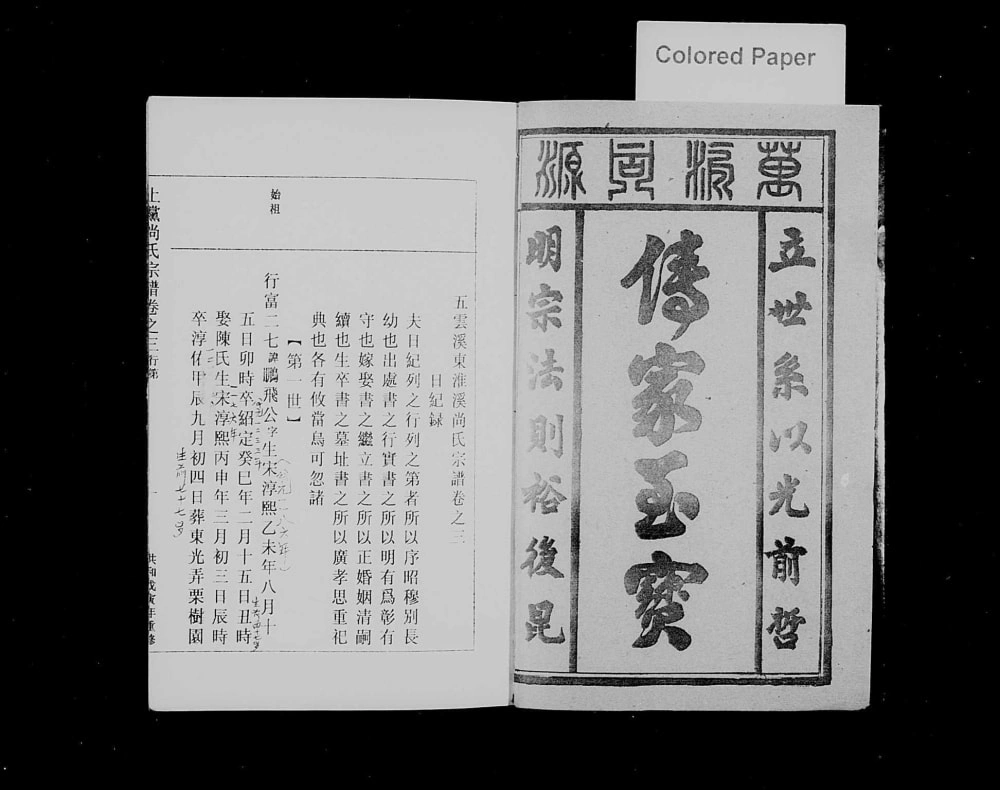 Colored Paper
萬派同源
立世系以光前哲
傳家至寶
明宗法則裕後昆
五雲溪東淮溪尚氏宗譜卷之三
日紀録
夫日紀列之行列之第者所以序昭穆別長
幼也出處書之行實書之所以明有爲彰有
守也嫁娶書之繼立書之所以正婚姻清嗣
續也生卒書之墓址書之所以廣孝思重祀
典也各有攸當烏可忽諸
【第一世】
始祖
行富二七諱鵬飛公字生宋淳熙乙未年八月十
五日卯時卒紹定癸巳年二月十五日丑時
娶陳氏生宋淳熙丙申年三月初三日辰時
卒淳佑甲辰九月初四日葬東光弄栗樹園
上黨尚氏宗譜卷之三行第
一
共和戊寅年重修